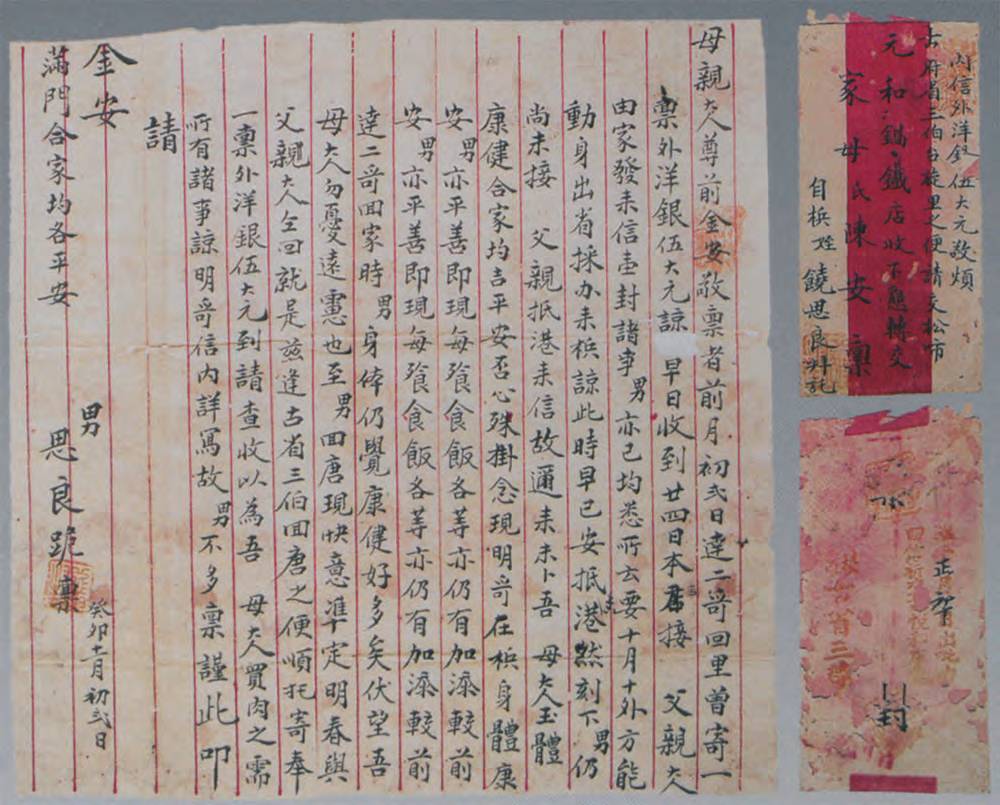 母親大人尊前金安敬稟者前月初弍日達二哥回里曾寄一
稟外洋銀伍大元諒 早日收到廿四日本君接 父親大人
由家發来信壹封諸事男亦已均悉所云要十月十外方能
動身出省採办来梹諒此時早已安抵港然刻下男仍
尚未接 父親抵港来信故邇来未卜吾 母大人玉體
康健合家均吉平安否心殊掛念現明哥在梹身體康
安男亦平善即現每飡食飯各等亦仍有加添較前
安男亦平善即現每飡食飯各等亦仍有加添較前
達二哥回家時男身体仍覺康健好多矣伏望吾
母大人勿憂遠慮也至男回唐現快意準定明春與
父親大人仝回就是兹逢古省三伯回唐之便順托寄奉
一稟外洋銀伍大元到請查收以為吾 母大人買肉之需
所有諸事諒明哥信内詳寫故男不多稟謹此叩
請
金安
滿門合家均各平安
男 思良跪稟
癸卯十一月初弍日
内信外洋銀伍大元敬煩
古府省三伯台旋里之便請交松市
元和鍋鐵店收下懇轉交
家母氏陳安稟
自梹姓饒思良拜託
正
封